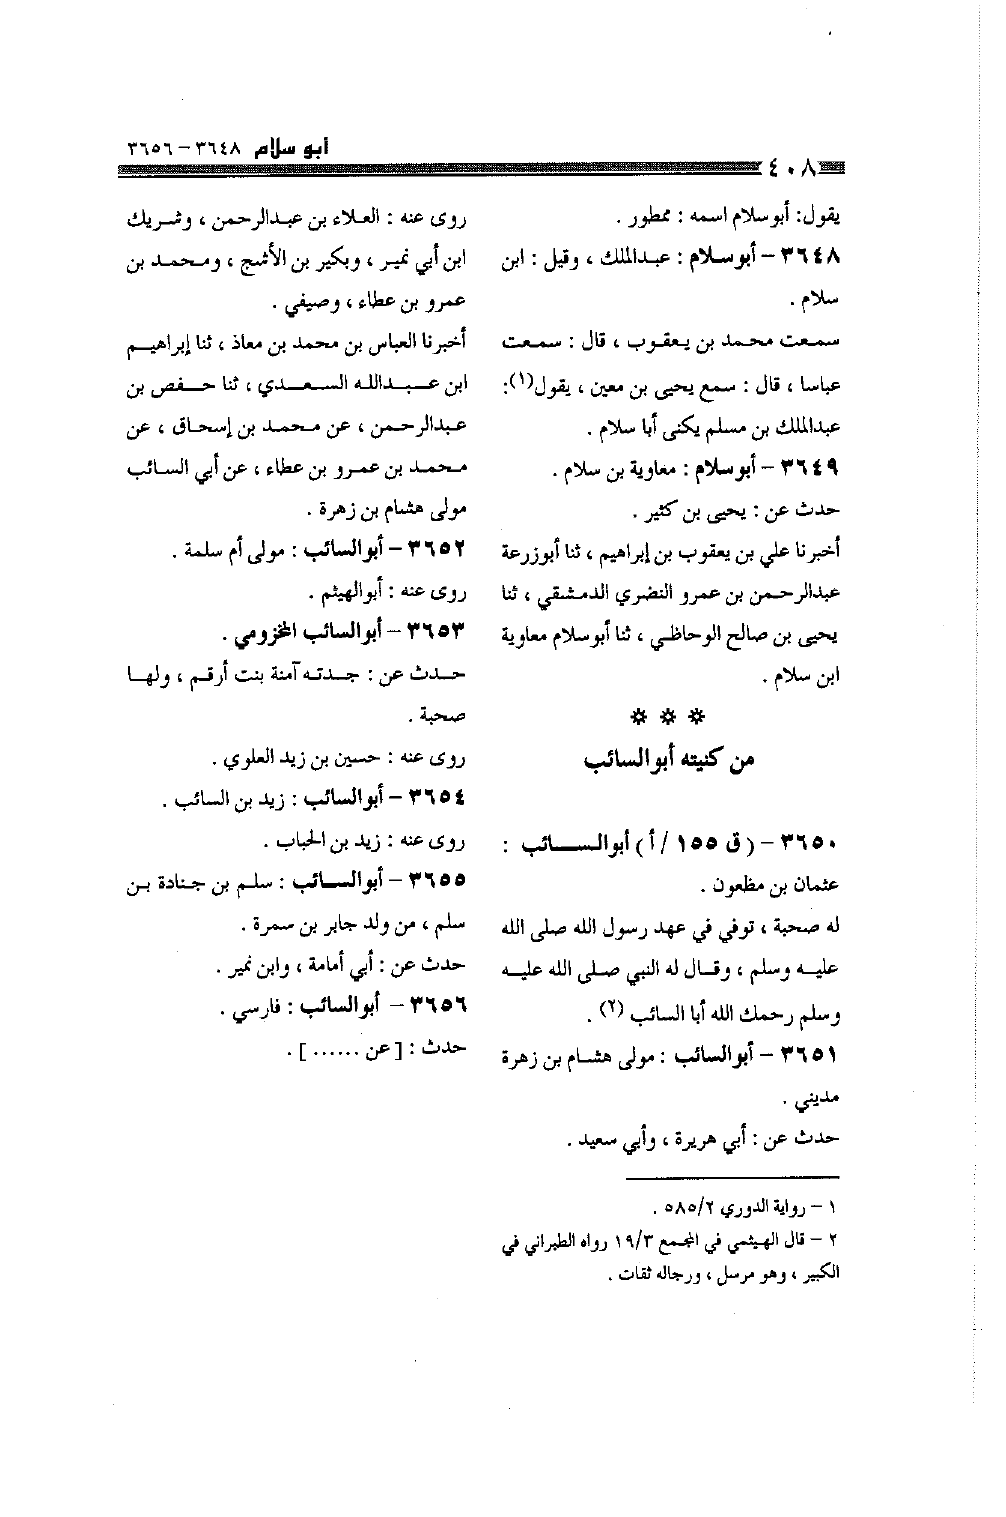 أبو سلام ٣٦٤٨ – ٣٦٥٦
٤٠٨
يقول: أبوسلام اسمه : ممطور .
٣٦٤٨ – أبوسلام : عبدالملك ، وقيل : ابن
سلام .
سمعت محمد بن يعقوب ، قال : سمعت
عباسا ، قال : سمع يحيى بن معين ، يقول(١):
عبدالملك بن مسلم يكنى أبا سلام .
٣٦٤٩ – أبوسلام : معاوية بن سلام .
حدث عن : يحيى بن كثير .
أخبرنا علي بن يعقوب بن إبراهيم ، ثنا أبوزرعة
عبدالرحمن بن عمرو النضري الدمشقي ، ثنا
يحيى بن صالح الوحاظي ، ثنا أبوسلام معاوية
ابن سلام .
* * *
من كنيته أبوالسائب
٣٦٥٠ – (ق ١٥٥ /أ) أبوالسائب :
عثمان بن مظعون .
له صحبة ، توفي في عهد رسول الله صلى الله
عليه وسلم ، وقال له النبي صلى الله عليه
وسلم رحمك الله أبا السائب (٢) .
٣٦٥١ – أبوالسائب : مولى هشام بن زهرة
مديني .
حدث عن : أبي هريرة ، وأبي سعيد .
روى عنه : العلاء بن عبدالرحمن ، وشريك
ابن أبي نمير ، وبكير بن الأشج ، ومحمد بن
عمرو بن عطاء ، وصيفي .
أخبرنا العباس بن محمد بن معاذ ، ثنا إبراهيم
ابن عبدالله السعدي ، ثنا حفص بن
عبدالرحمن ، عن محمد بن إسحاق ، عن
محمد بن عمرو بن عطاء ، عن أبي السائب
مولى هشام بن زهرة .
٣٦٥٢ – أبوالسائب : مولى أم سلمة .
روى عنه : أبوالهيثم .
٣٦٥٣ – أبوالسائب المخزومي .
حدث عن : جدته آمنة بنت أرقم ، ولها
صحبة .
روى عنه : حسين بن زيد العلوي .
٣٦٥٤ – أبوالسائب : زيد بن السائب .
روى عنه : زيد بن الحباب .
٣٦٥٥ – أبوالسائب : سلم بن جنادة بن
سلم ، من ولد جابر بن سمرة .
حدث عن : أبي أمامة ، وابن نمير .
٣٦٥٦ – أبوالسائب : فارسي .
حدث : [ عن ...... ] .
١ – رواية الدوري ٥٨٥/٢ .
٢ – قال الهيثمي في المجمع ١٩/٣ رواه الطبراني في
الكبير ، وهو مرسل ، ورجاله ثقات .